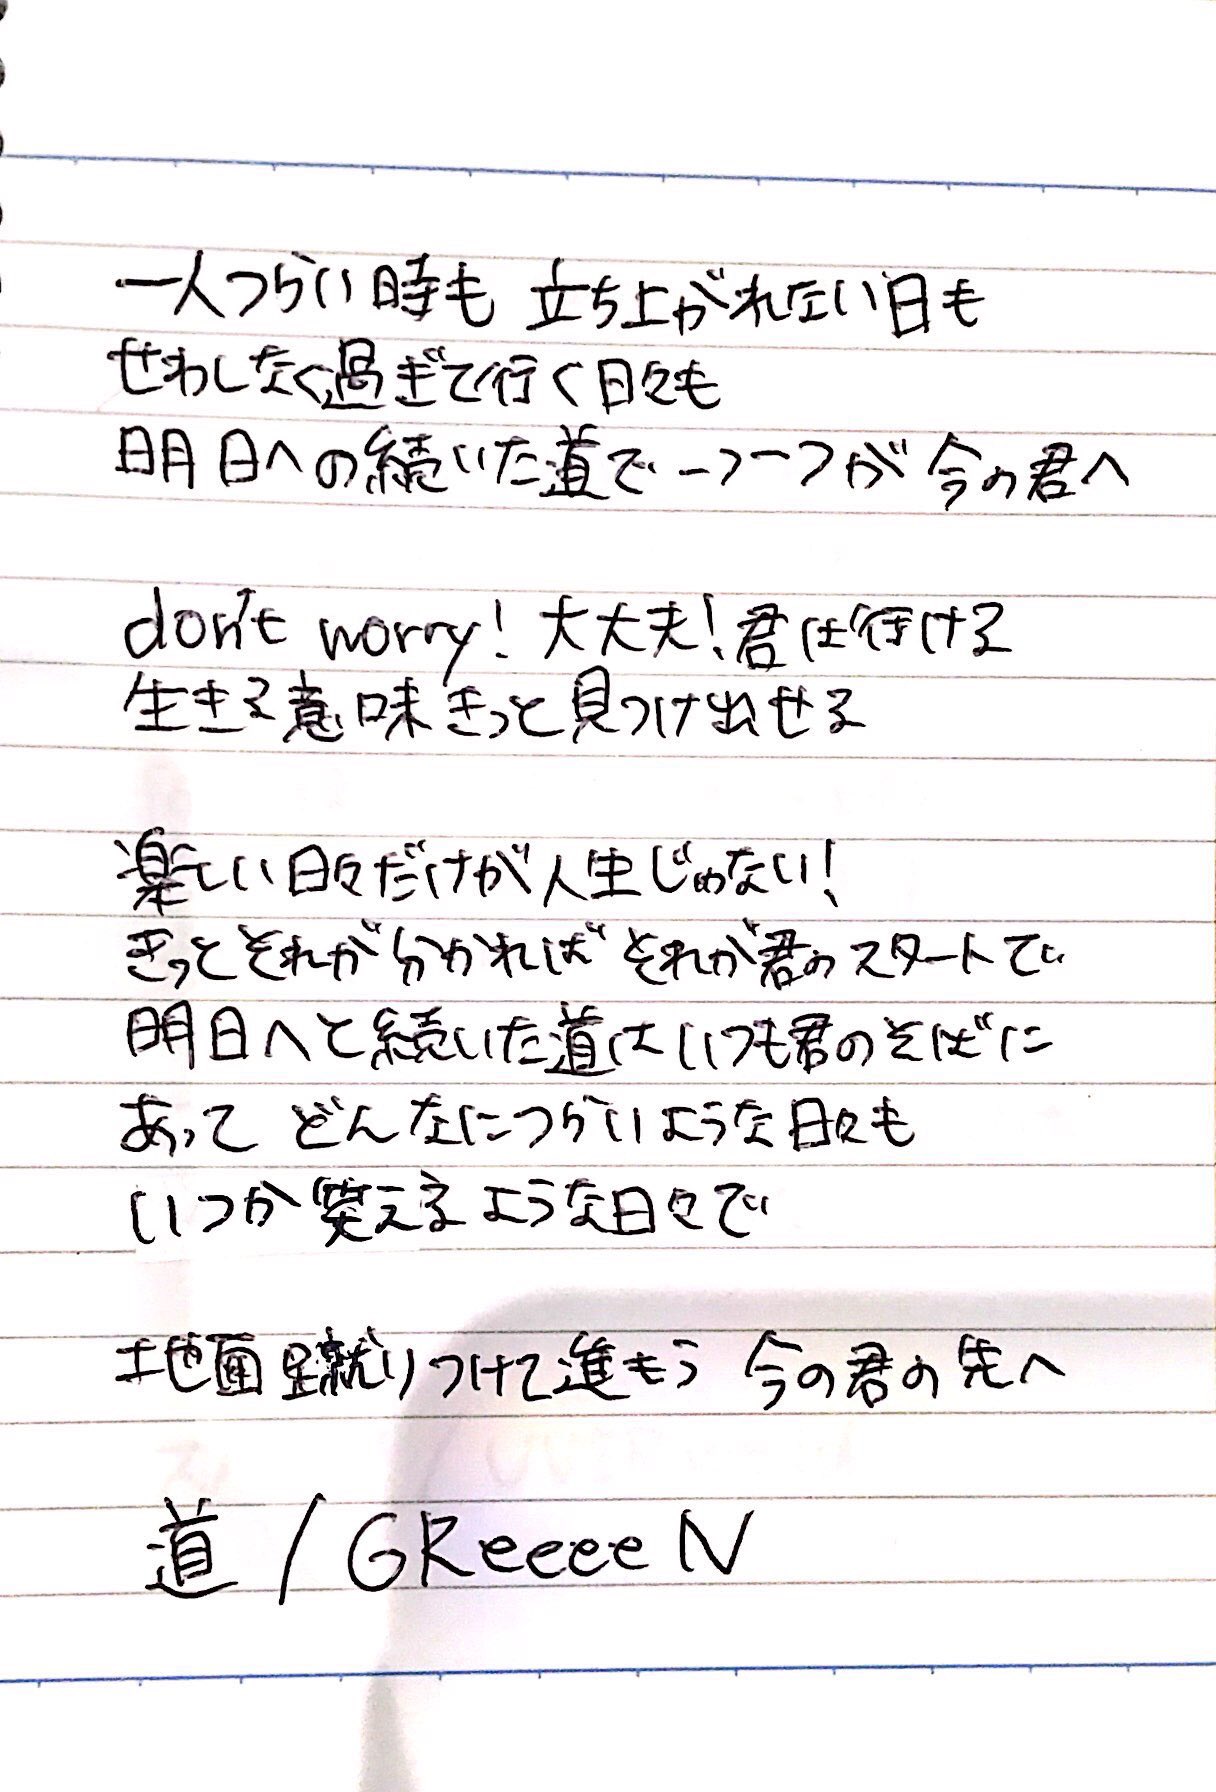 一人つらい時も 立ち上がれない日も
せわしなく過ぎて行く日々も
明日への続いた道で 一つ一つが 今の君へ
don't worry! 大丈夫! 君は行ける
生きる意味きっと見つけ出せる
楽しい日々だけが人生じゃない!
きっとそれが分かれば それが君のスタートで
明日へと続いた道はいつも君のそばに
あって どんなにつらいような日々も
いつか笑えるような日々で
地面蹴りつけて進もう 今の君の先へ
道 / GReeeeN